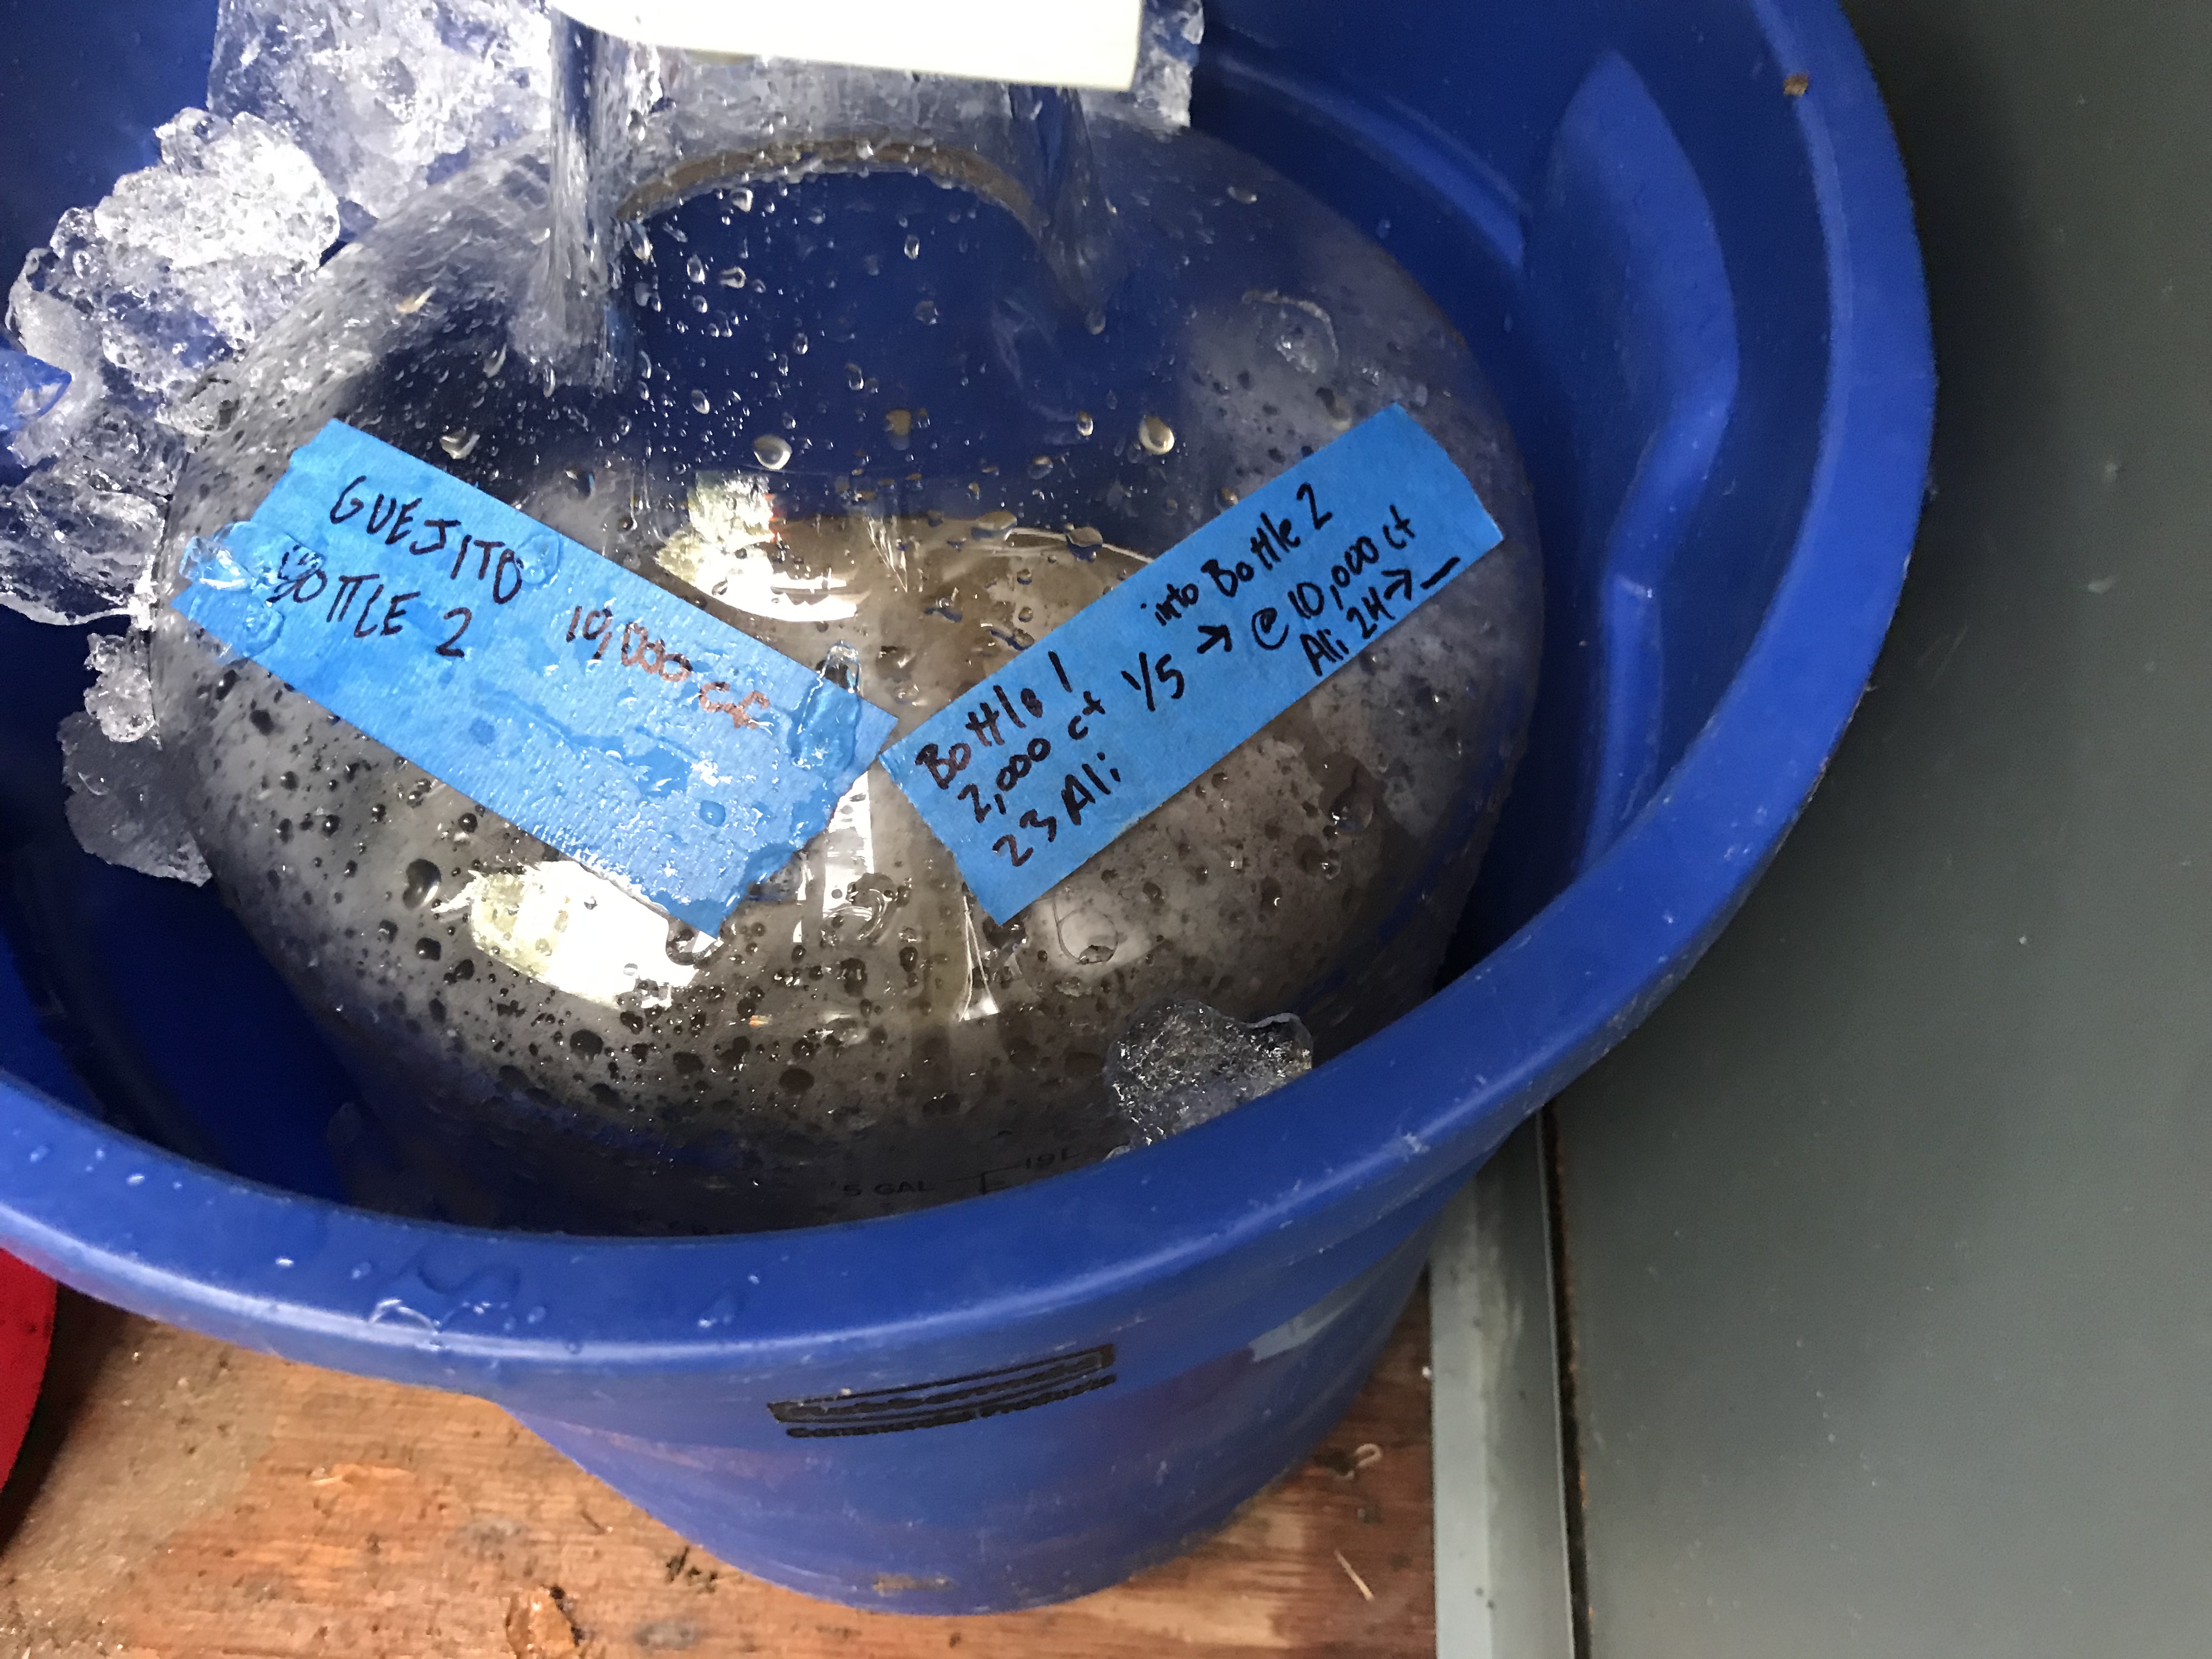 GUEJITO
BOTTLE 2
10,000 ct
into Bottle 2
Bottle 1
2,000 ct 1/5 → @ 10,000 ct
23 Ali
Ali 24→_
5 GAL
19L